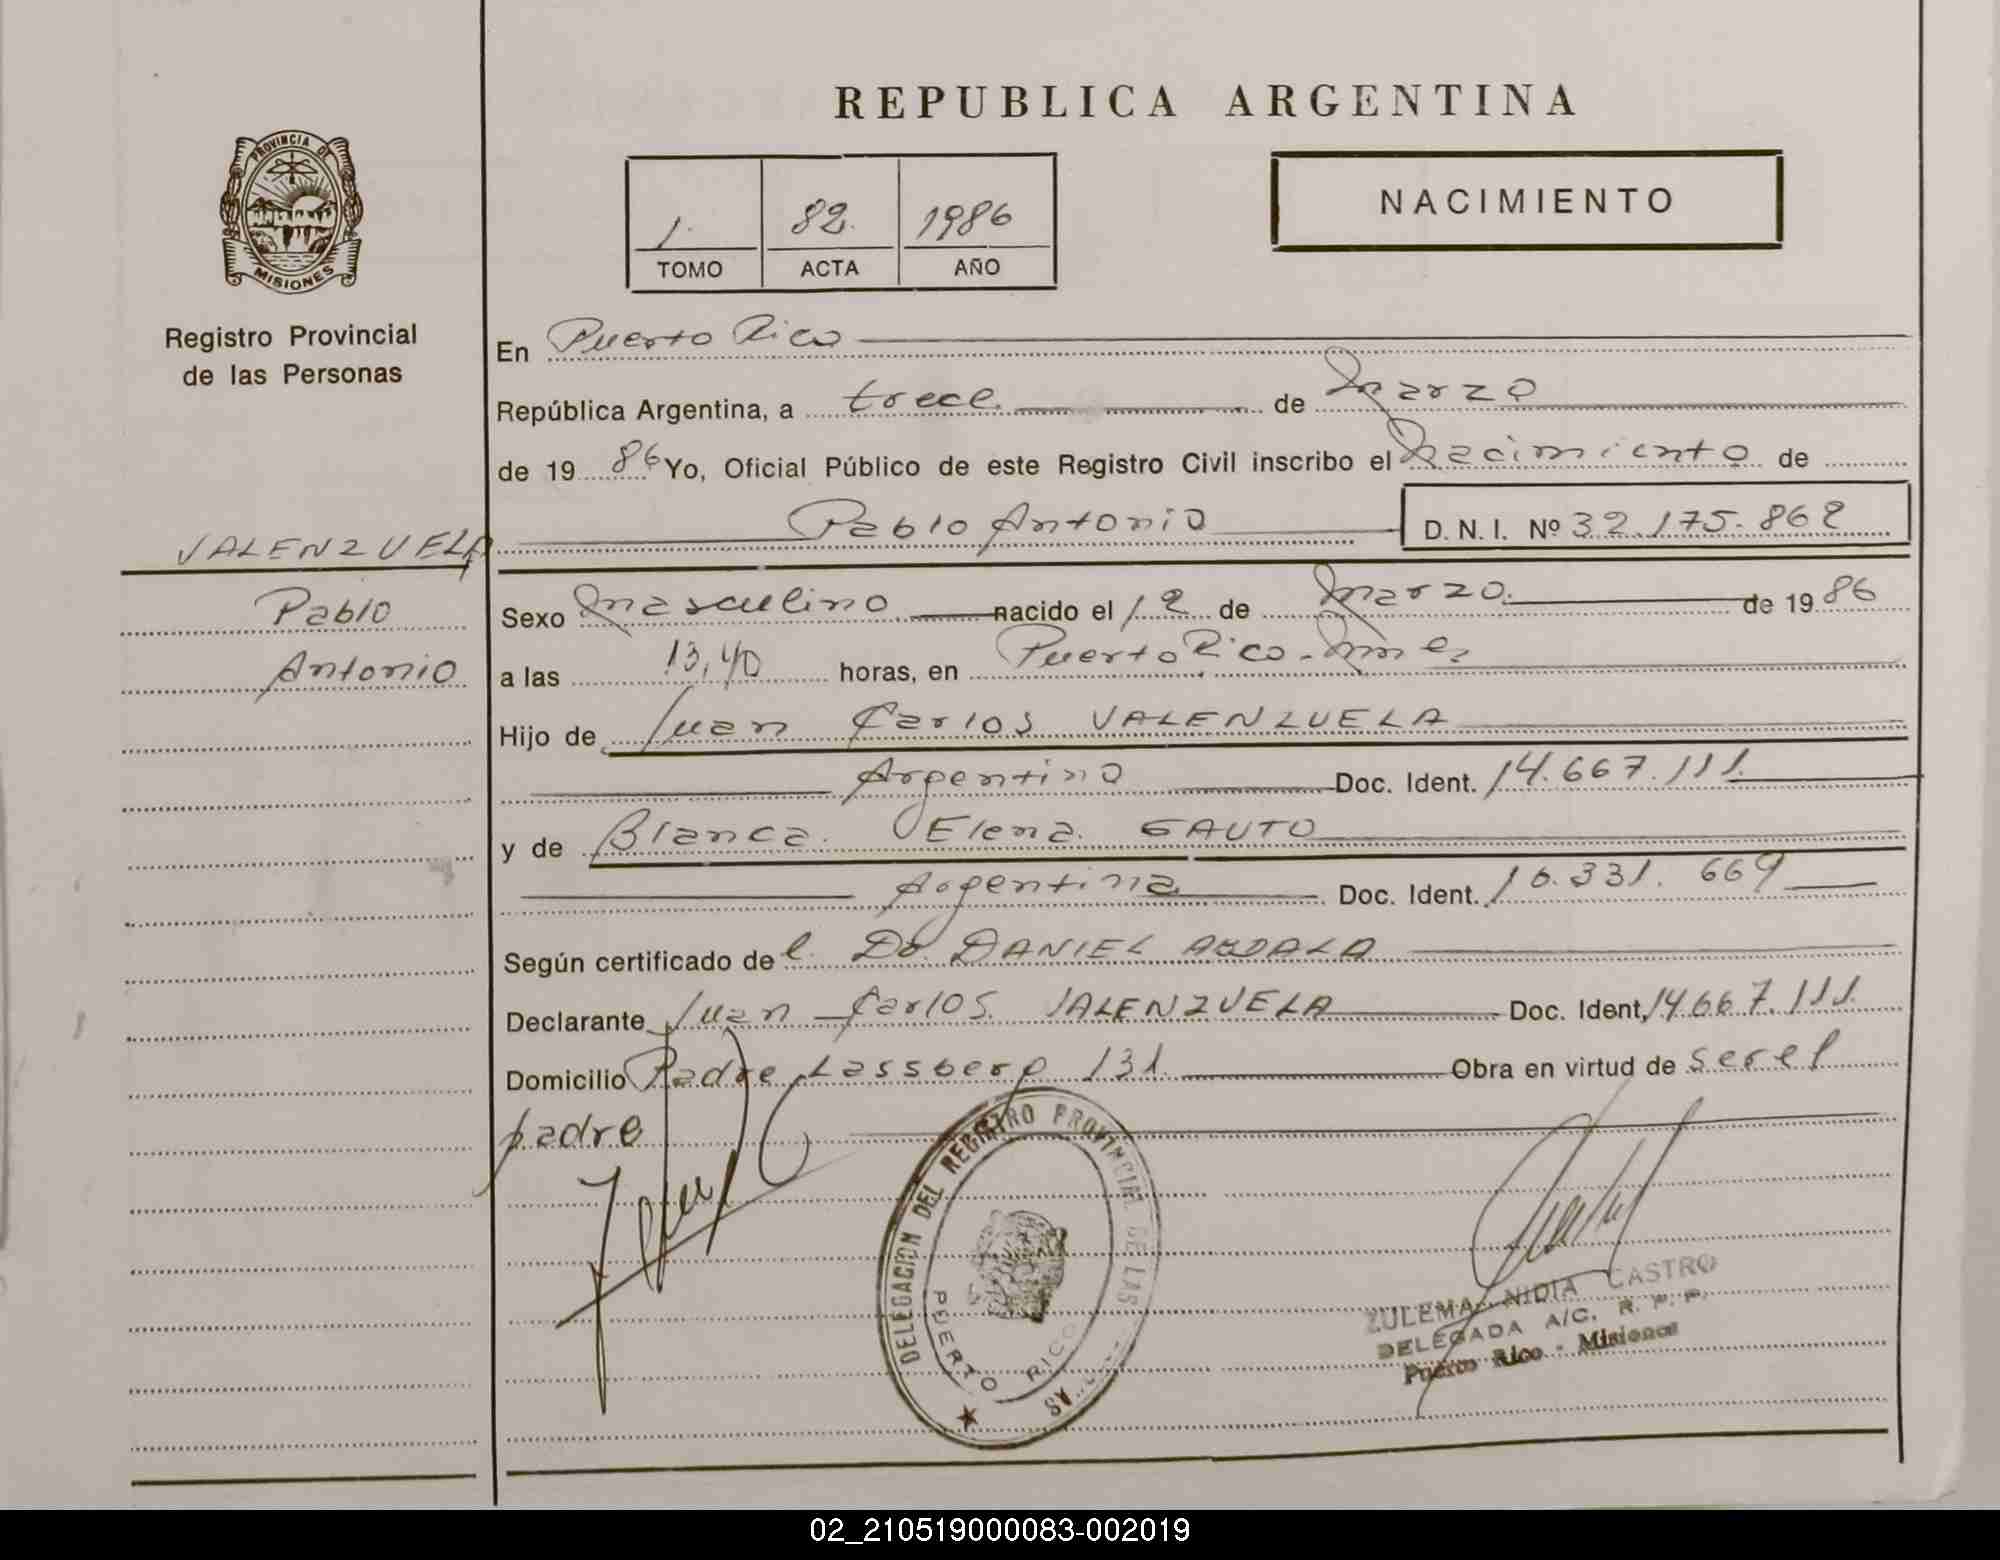 REPUBLICA ARGENTINA
PROVINCIA DE
MISIONES
Registro Provincial
de las Personas
1. 82. 1986
TOMO ACTA AÑO
NACIMIENTO
En Puerto Rico
República Argentina, a trece de Marzo
de 19 86 Yo, Oficial Público de este Registro Civil inscribo el Nacimiento de
Pablo Antonio D. N. I. Nº 32.175.862
VALENZUELA
Pablo
Antonio
Sexo Masculino nacido el 12 de Marzo. de 19 86
a las 13,40 horas, en Puerto Rico - Mnes
Hijo de Juan Carlos VALENZUELA
Argentino Doc. Ident. 14.667.111.
y de Blanca Elena GAUTO
Argentina Doc. Ident. 16.331.669
Según certificado del Dr. DANIEL ABDALA
Declarante Juan Carlos VALENZUELA Doc. Ident. 14.667.111.
Domicilio Padre Lassberg 131. Obra en virtud de ser el
padre
DELEGACION DEL REGISTRO PROVINCIAL DE LAS
PUERTO RICO
ZULEMA NIDIA CASTRO
DELEGADA A/C. R. P. P.
Puerto Rico - Misiones
02_210519000083-002019